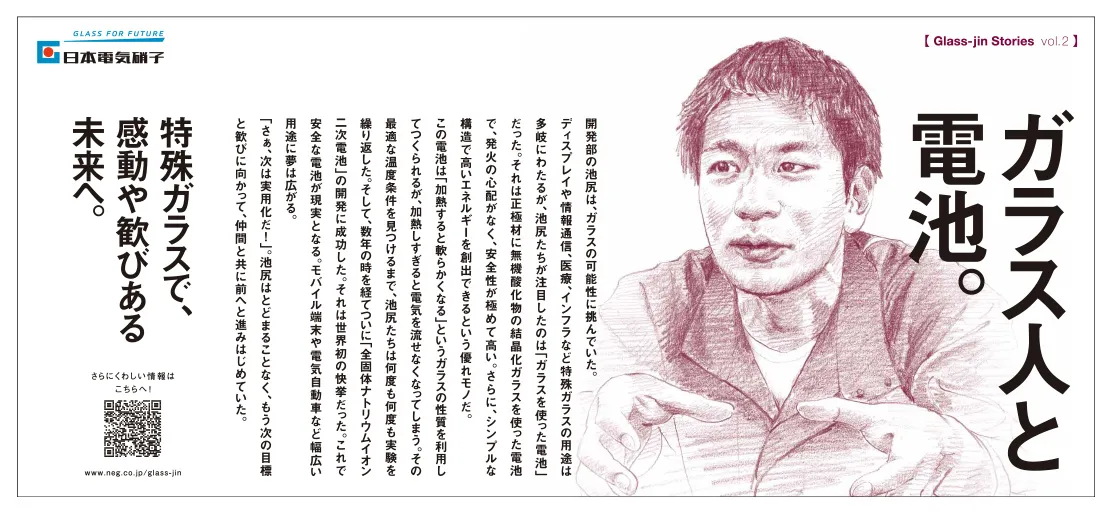 GLASS FOR FUTURE
日本電気硝子
【 Glass-jin Stories vol.2 】
ガラス人と
電池。
開発部の池尻は、ガラスの可能性に挑んでいた。
ディスプレイや情報通信、医療、インフラなど特殊ガラスの用途は
多岐にわたるが、池尻たちが注目したのは「ガラスを使った電池」
だった。それは正極材に無機酸化物の結晶化ガラスを使った電池
で、発火の心配がなく、安全性が極めて高い。さらに、シンプルな
構造で高いエネルギーを創出できるという優れモノだ。
この電池は「加熱すると軟らかくなる」というガラスの性質を利用し
てつくられるが、加熱しすぎると電気を流せなくなってしまう。その
最適な温度条件を見つけるまで、池尻たちは何度も何度も実験を
繰り返した。そして、数年の時を経てついに「全固体ナトリウムイオン
二次電池」の開発に成功した。それは世界初の快挙だった。これで
安全な電池が現実となる。モバイル端末や電気自動車など幅広い
用途に夢は広がる。
「さぁ、次は実用化だ!」。池尻はとどまることなく、もう次の目標
と歓びに向かって、仲間と共に前へと進みはじめていた。
特殊ガラスで、
感動や歓びある
未来へ。
さらにくわしい情報は
こちらへ!
www.neg.co.jp/glass-jin